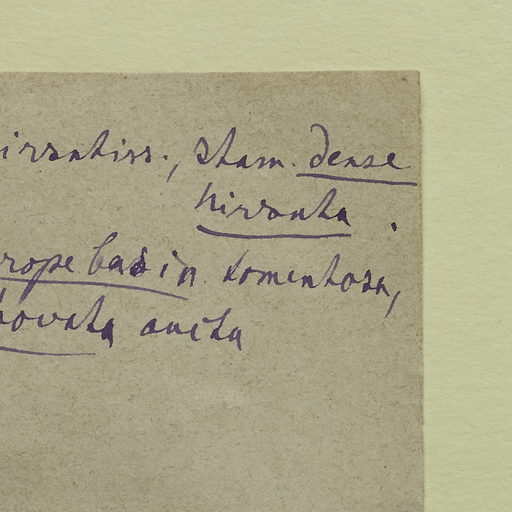 irsutiss., stam. dense
hirsuta.
rope basin tomentosa,
bovata aucta